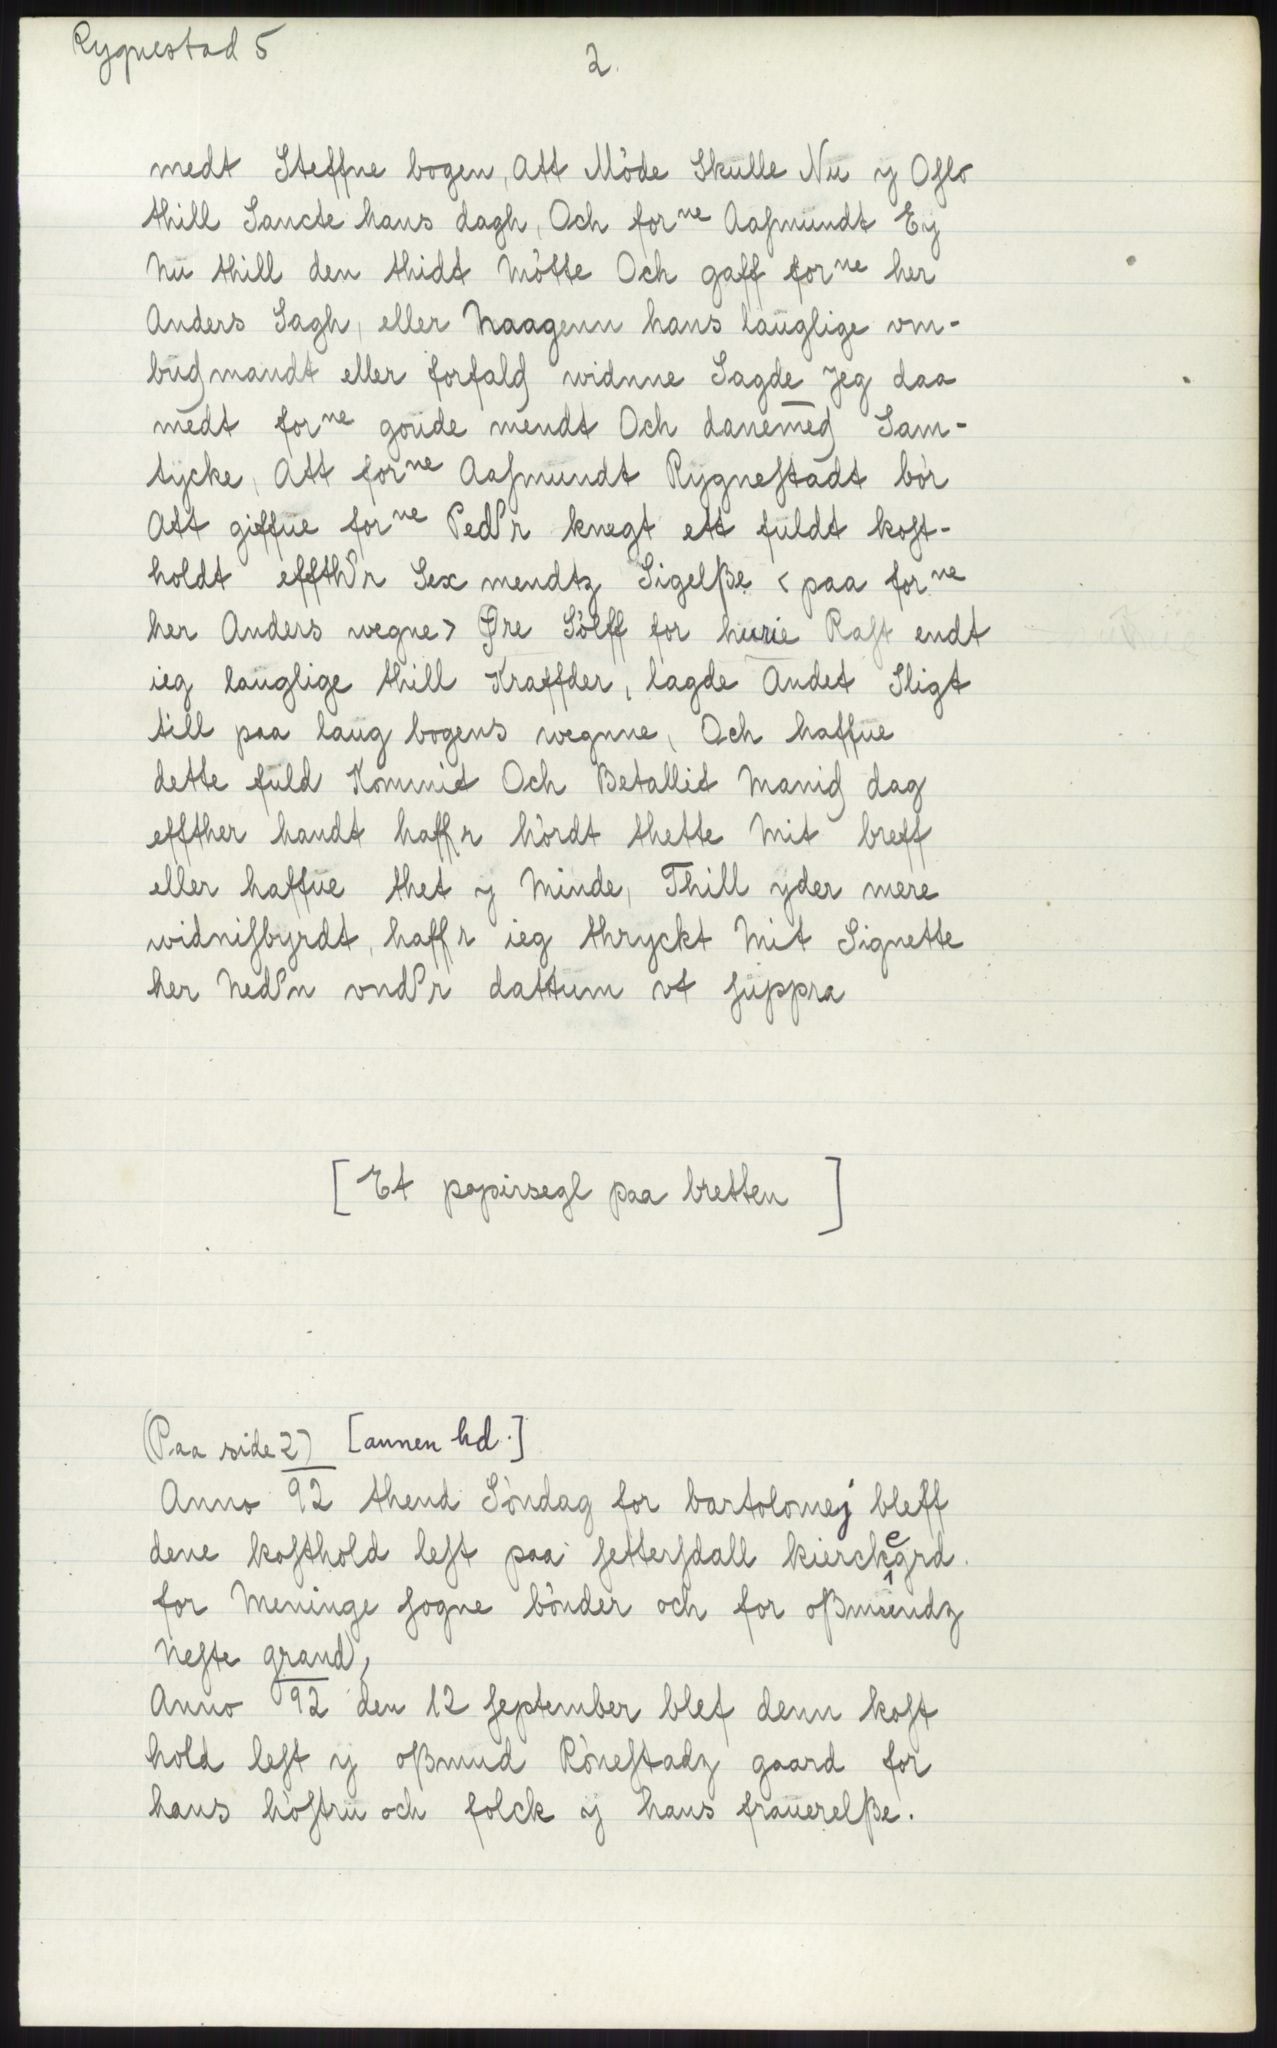 Rygnestad 5
2.
medt Steffne bogen, Att Möde Skulle Nü y Oſlo
thill Sancte hans dagh, Och forⁿᵉ Aaſmundt Ey
Nü thill den thidt Mötte Och gaff forⁿᵉ her
Anders Sagh, eller Naagenn hans lauglige vm-
budmandt eller forfald widnne Sagde Jeg daa
medt forⁿᵉ goude mendt Och danemed Sam-
tycke, Att forⁿᵉ Aaſmundt Rygneſtadt bör
Att giffue forⁿᵉ Pedr knegt ett fuldt koſt-
holdt effthr Sex mendtz Sigelße < paa forⁿᵉ
her Anders wegne> Øre Sölff for hurie Raſt endt
ieg lauglige thill Kraffder, lagde Andet Sligt
till paa laug bogens wegnne, Och haffue
dette fuld Kommit Och Betallit Manid dag
effther handt haffr hördt thette Mit breff
eller haffue thet y Minde, Thill yder mere
widniſbyrdt, haffr ieg thryckt Mit Signette
her Nedn vndr dattum vt ſuppra
[Et papirsegl paa bretten]
(Paa side 2) [annen hd.]
Anno 92 thend Söndag for bartolomej bleff
dene koſthold leſt paa ſetterſdall kierckegrd.
for Meninge ſogne bönder och for oßmundz
Neſte grand,
Anno 92 den 12 ſeptember blef denn koſt
hold leſt y oßmud Röneſtadz gaard for
hans höſtru och folck y hans frauerelße.